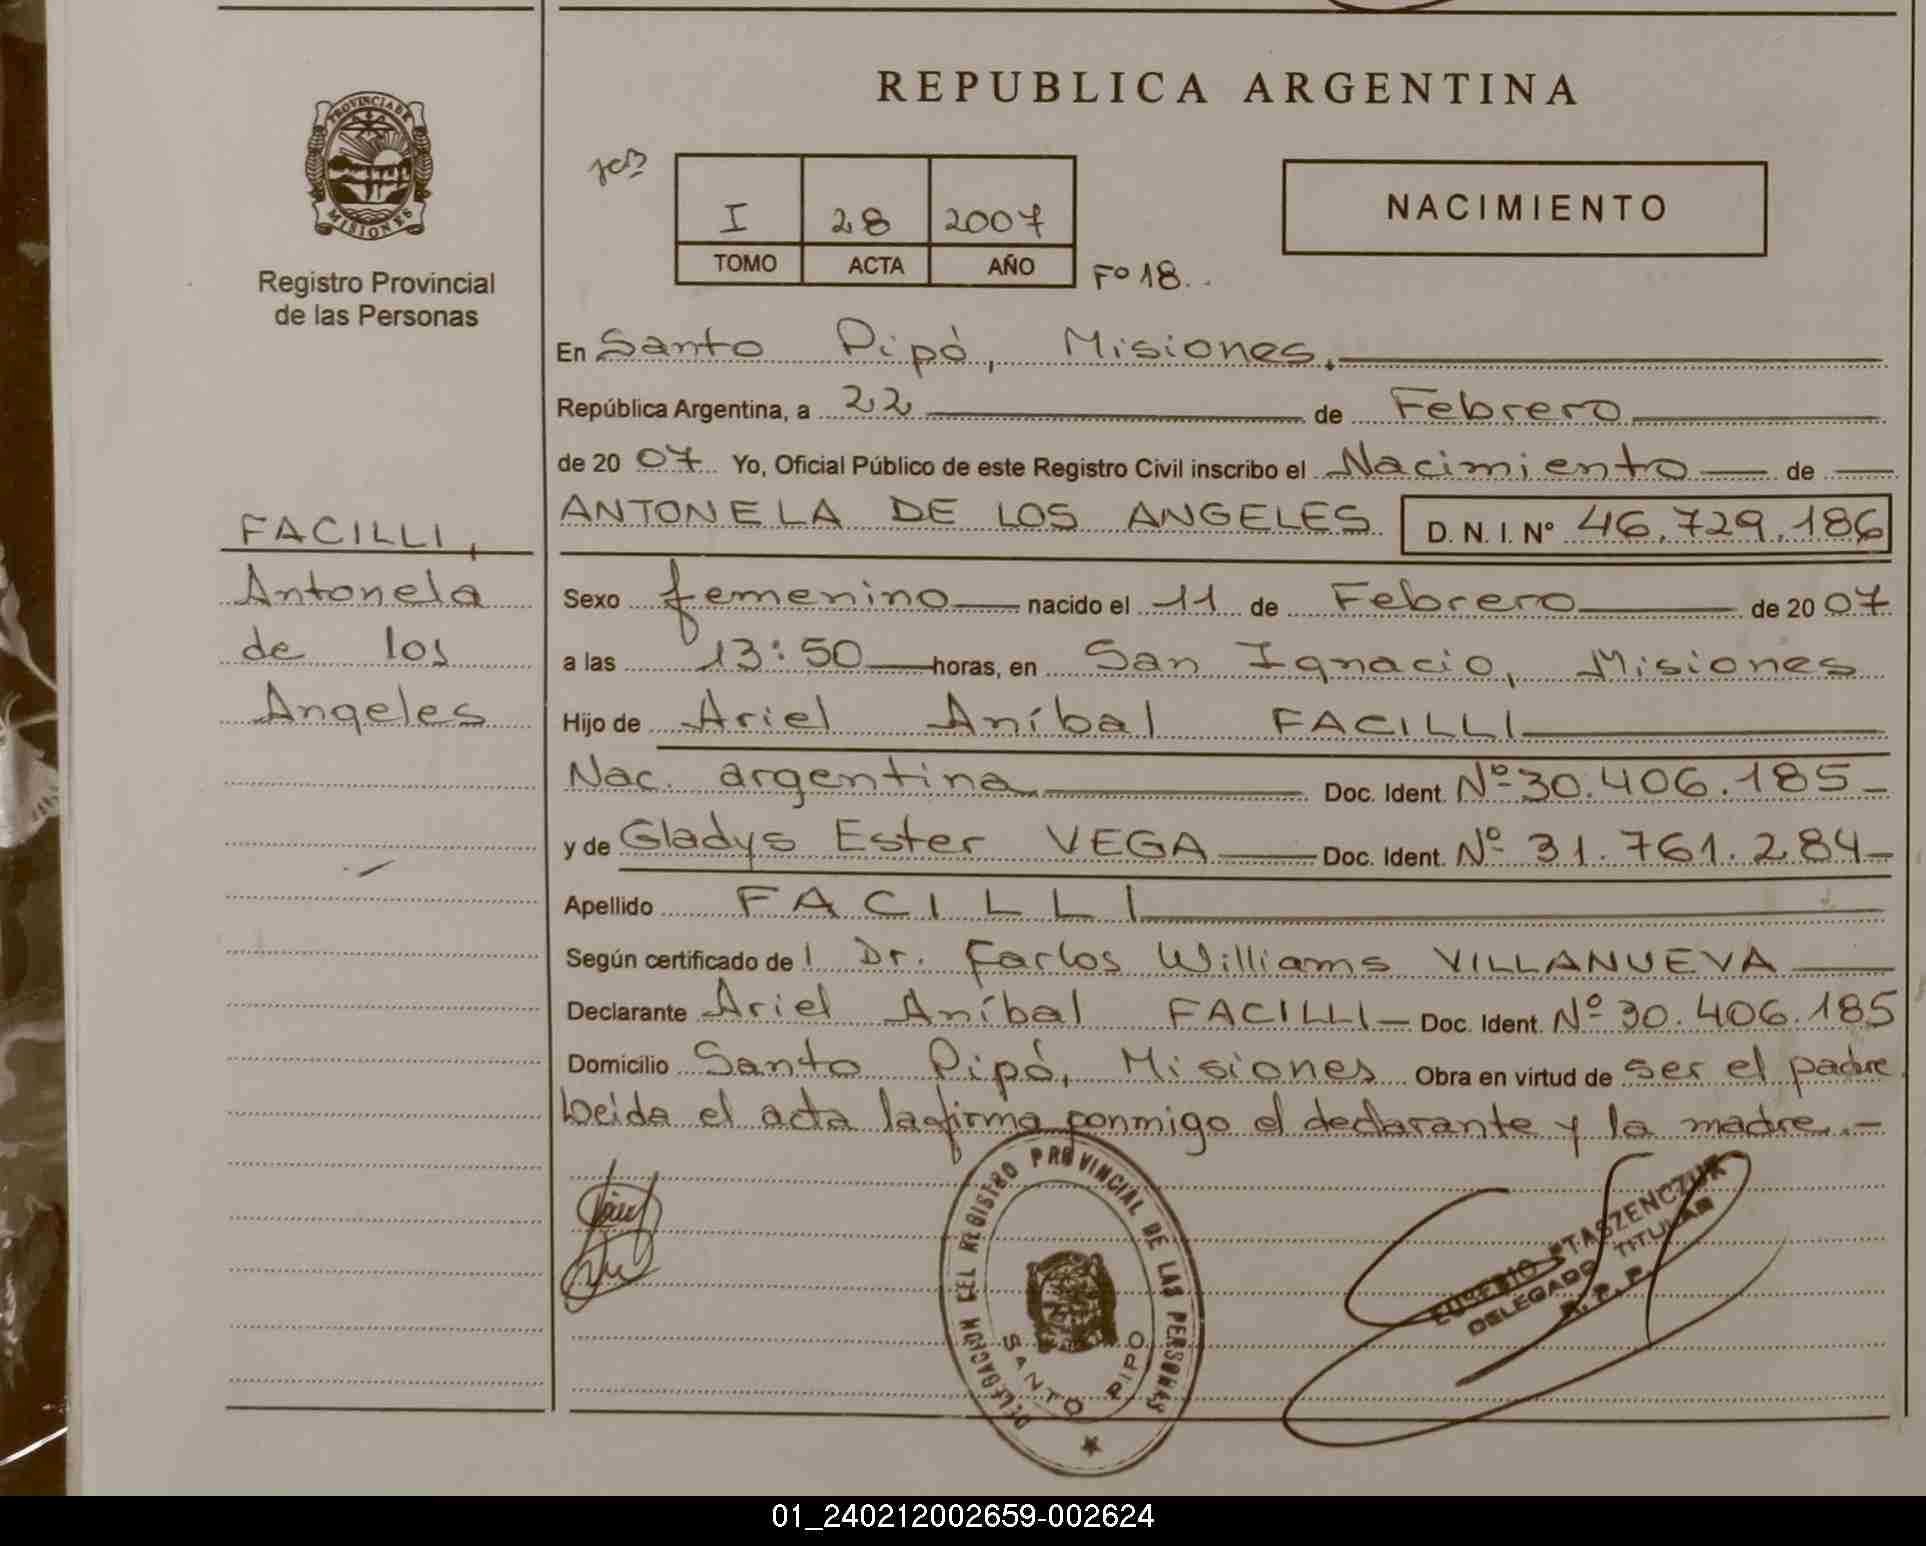 REPUBLICA ARGENTINA
PROVINCIA DE
MISIONES
Registro Provincial
de las Personas
I 28 2007
TOMO ACTA AÑO
Fº 18..
NACIMIENTO
En Santo Pipó, Misiones.
República Argentina, a 22 de Febrero
de 20 07 Yo, Oficial Público de este Registro Civil inscribo el Nacimiento de
ANTONELA DE LOS ANGELES D. N. I. Nº 46.729.186
FACILLI,
Antonela
de los
Angeles
Sexo femenino nacido el 11 de Febrero de 20 07
a las 13:50 horas, en San Ignacio, Misiones
Hijo de Ariel Aníbal FACILLI
Nac. argentina Doc. Ident. Nº 30.406.185
y de Gladys Ester VEGA Doc. Ident. Nº 31.761.284
Apellido FACILLI
Según certificado de l Dr. Carlos Williams VILLANUEVA
Declarante Ariel Aníbal FACILLI Doc. Ident. Nº 30.406.185
Domicilio Santo Pipó, Misiones Obra en virtud de ser el padre.
Leida el acta la firma conmigo el declarante y la madre.-
DELEGACION DEL REGISTRO PROVINCIAL DE LAS PERSONAS
SANTO PIPO
EUSEBIO PTASZENCZUK
DELEGADO TITULAR
R. P. P.
01_240212002659-002624